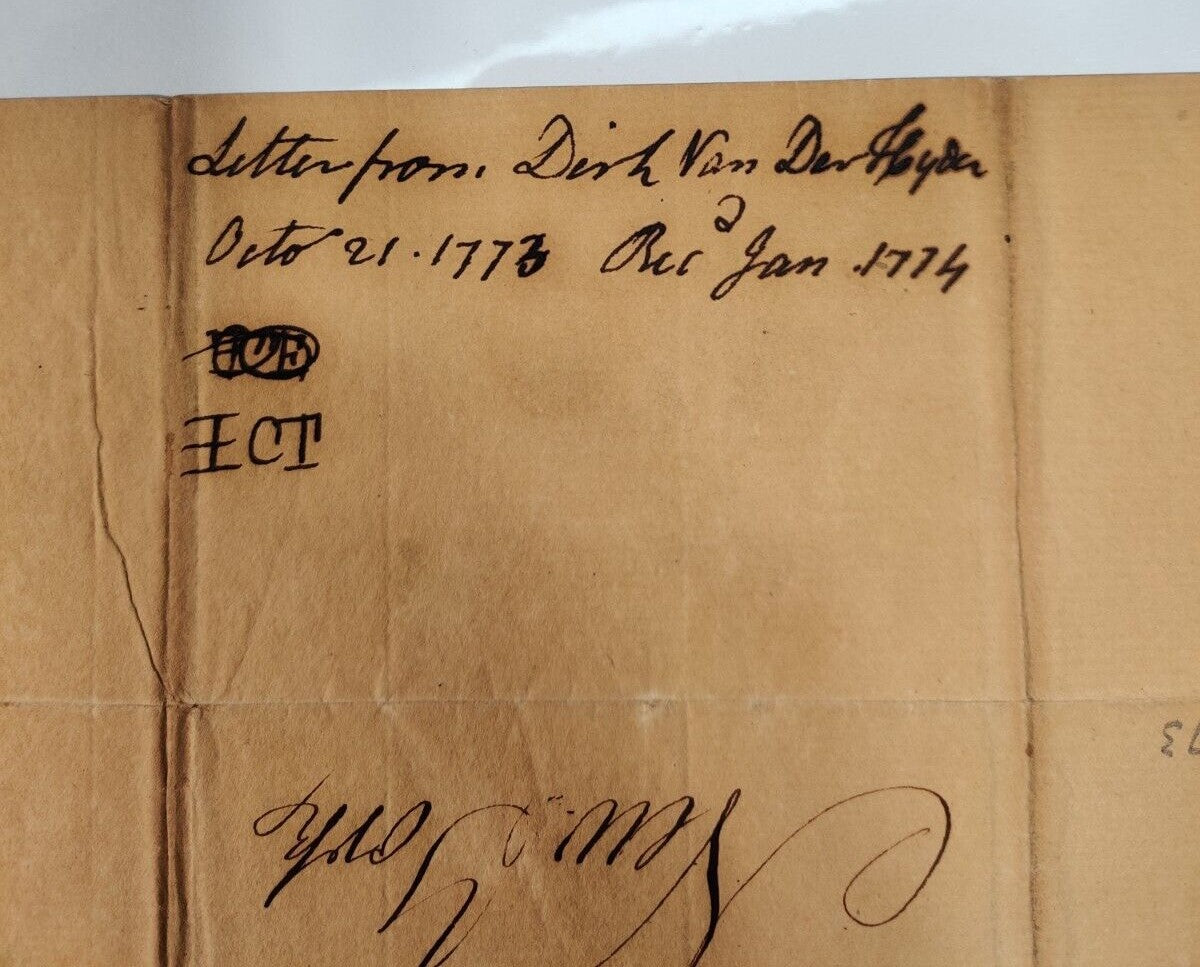 Letter from Dirk Van Der Hyder
Octo 21. 1773 Recd Jan. 1774
ICT
New York